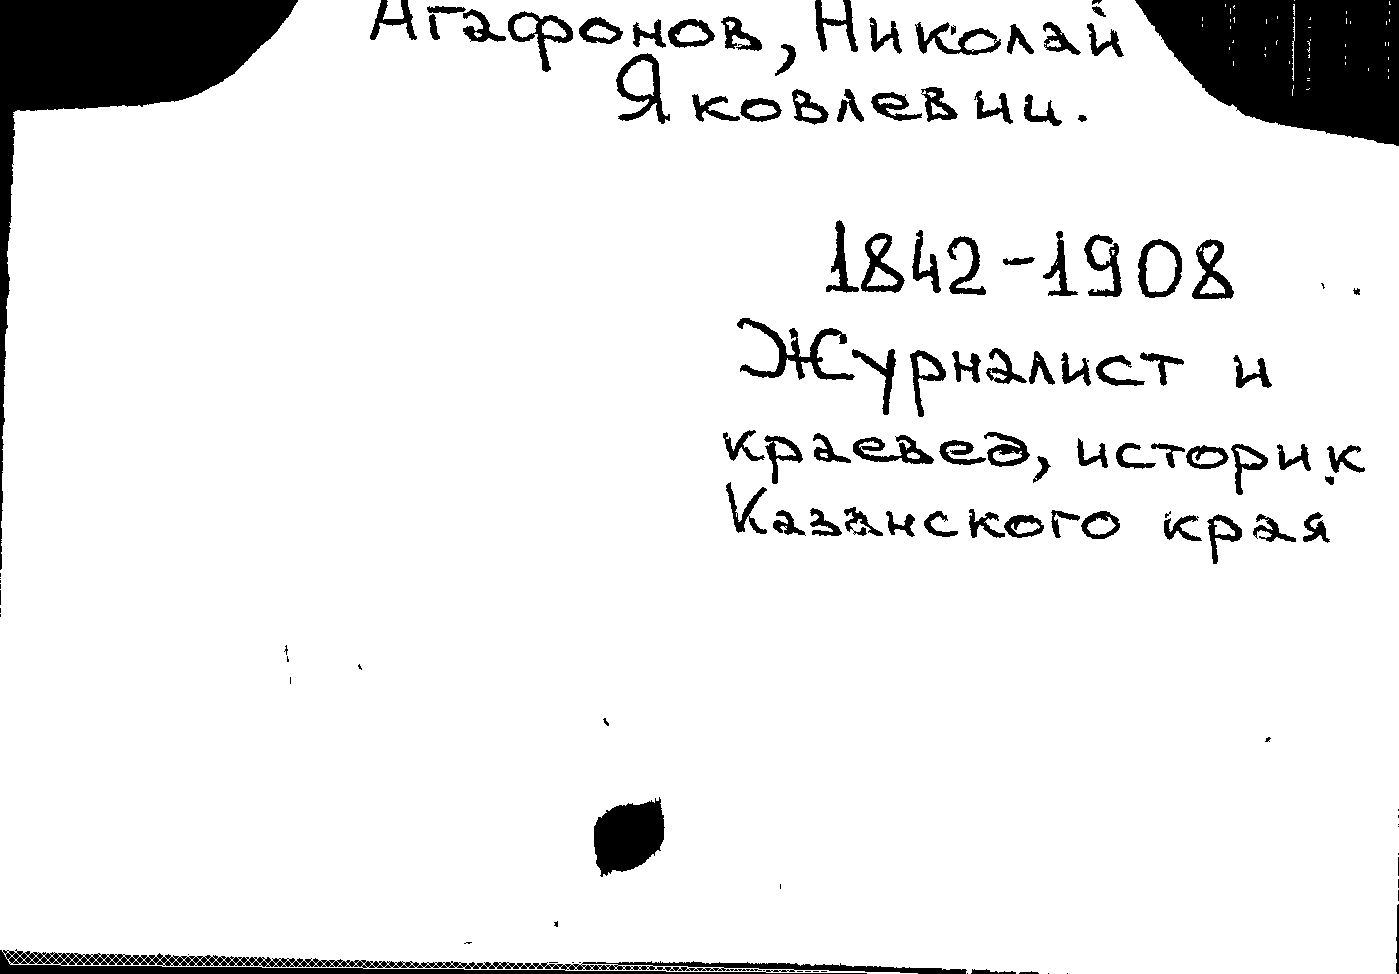 Агафонов, Николай
Яковлевич.
1842-1908
Журналист и
краевед, историк
Казанского края